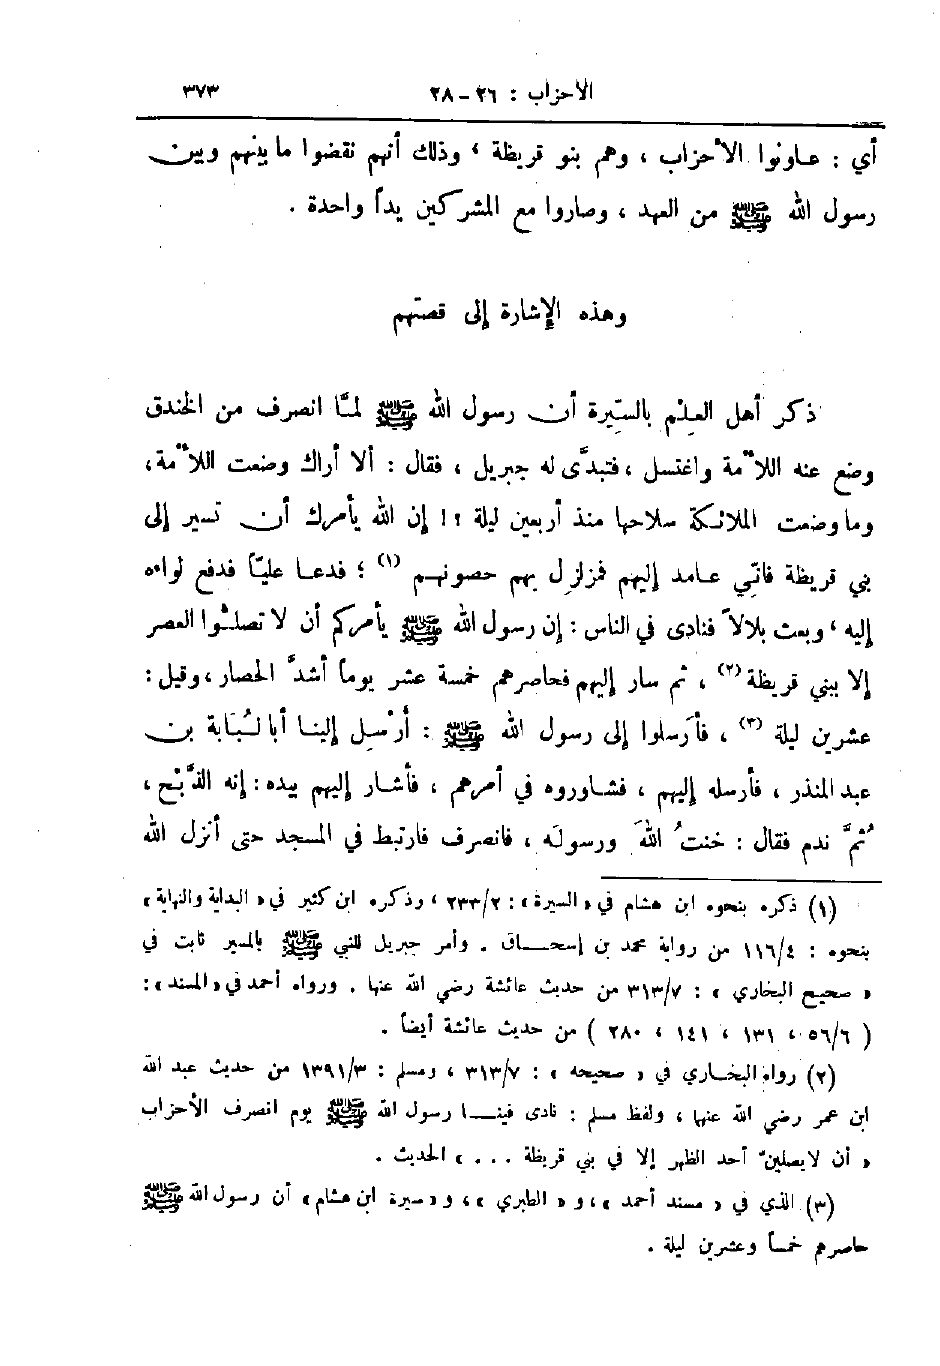 الأحزاب : ٢٦ - ٢٨ ٣٧٣
أي : عاونوا الأحزاب ، وهم بنو قريظة ، وذلك أنهم نقضوا ما بينهم وبين
رسول الله ﷺ من العهد ، وصاروا مع المشركين يداً واحدة .
وهذه الإشارة إلى قصتهم
ذكر أهل العِلْم بالسِّيرة أن رسول الله ﷺ لمَّا انصرف من الخندق
وضع عنه اللأْمة واغتسل ، فتبدَّى له جبريل ، فقال : ألا أراك وضعت اللأْمة ،
وما وضعت الملائكة سلاحها منذ أربعين ليلة ؟! إن الله يأمرك أن تسير إلى
بني قريظة فانِّي عامد إليهم فمزلزِل بهم حصونهم (١) ؛ فدعا عليّاً فدفع لواءه
إليه ، وبعث بلالاً فنادى في الناس : إن رسول الله ﷺ يأمركم أن لا تصلُّوا العصر
إلا ببني قريظة (٢) ، ثم سار إليهم فحاصرهم خمسة عشر يوماً أشدَّ الحصار ، وقيل :
عشرين ليلة (٣) ، فأرسلوا إلى رسول الله ﷺ : أَرْسِل إلينا أبا لُبَابة بن
عبد المنذر ، فأرسله إليهم ، فشاوروه في أمرهم ، فأشار إليهم بيده : إنه الذَّبْح ،
ثُمَّ ندم فقال : خنتُ اللهَ ورسولَه ، فانصرف فارتبط في المسجد حتى أنزل الله
(١) ذكره بنحوه ابن هشام في « السيرة » : ٢٣٣/٢ ، وذكره ابن كثير في « البداية والنهاية »
بنحوه : ١١٦/٤ من رواية محمد بن إسحاق . وأمر جبريل للنبي ﷺ بالمسير ثابت في
« صحيح البخاري » : ٣١٣/٧ من حديث عائشة رضي الله عنها . ورواه أحمد في « المسند » :
( ٥٦/٦ ، ١٣١ ، ١٤١ ، ٢٨٠ ) من حديث عائشة أيضاً .
(٢) رواه البخاري في « صحيحه » : ٣١٣/٧ ، ومسلم : ١٣٩١/٣ من حديث عبد الله
ابن عمر رضي الله عنها ، ولفظ مسلم : نادى فينا رسول الله ﷺ يوم انصرف الأحزاب
« أن لا يصلينّ أحد الظهر إلا في بني قريظة . . . » الحديث .
(٣) الذي في « مسند أحمد » ، و « الطبري » ، و « سيرة ابن هشام » أن رسول الله ﷺ
حاصرهم خمساً وعشرين ليلة .